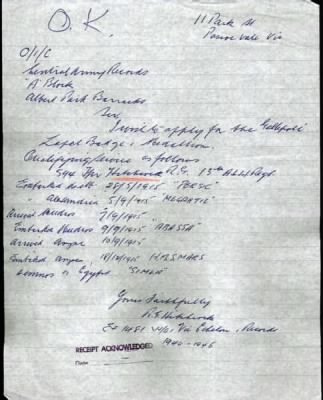 O.K.
11 Park St
Pascoe Vale Vic
O/I/C
Central Army Records
"A" Block
Albert Park Barracks
Sir
I wish to apply for the Gallipoli
Lapel Badge & Medallion.
Qualifying service as follows
544 Hitchcock R.G. 13th A.L.H. Regt.
Embarked Melb 28/5/1915 "PERSIC"
" Alexandria 5/9/1915 "MEGANTIC"
Arrived Mudros 7/9/1915
Embarked Mudros 9/9/1915 "ABASSIA"
Arrived Anzac 10/9/1915
Embarked Anzac, H.M.S. MARS
Lemnos to Egypt "SIMLA"
Yours Faithfully
R.G. Hitchcock
Vic Echelon, Records
1940-1945
RECEIPT ACKNOWLEDGED
Date